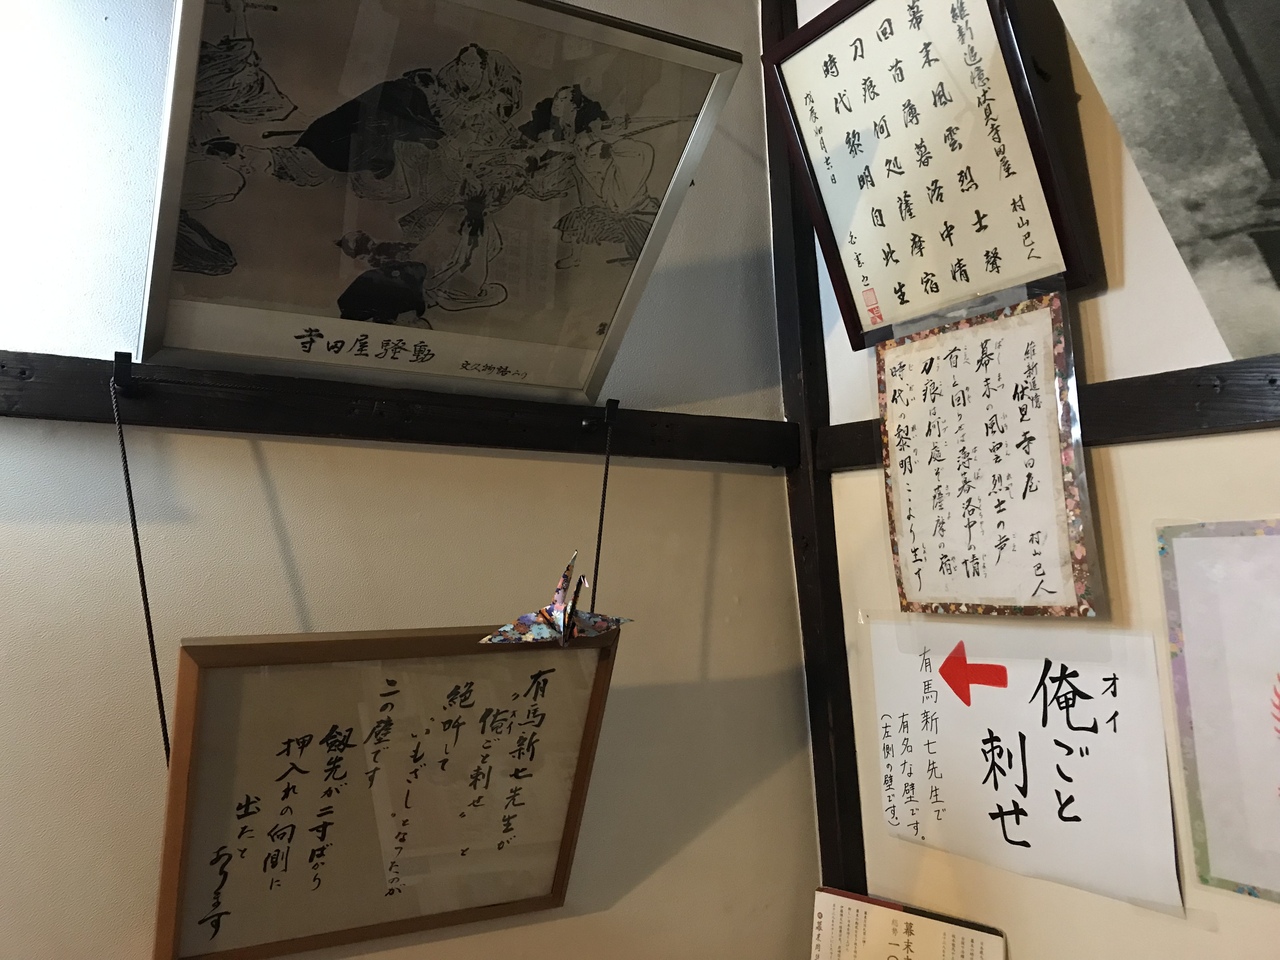 寺田屋騒動
文久物語より
有馬新七先生が
“俺ごと刺せ”と
オイ
絶叫して
いもざしとなったのが
この壁です。
劔先が二寸ばかり
押入れの向側に
出たと
あります
維新追憶伏見寺田屋 村山巳人
幕末風雲烈士聲
回首薄暮洛中情
刀痕何処薩摩宿
時代黎明自此生
維新追憶 伏見寺田屋 村山巳人
幕末の風雲烈士の声
首を回らせば薄暮洛中の情
刀痕は何處ぞ薩摩の宿
時代の黎明ここより生ず
オイ
俺ごと
刺せ
有馬新七先生で
有名な壁です。
(左側の壁です。)
幕末